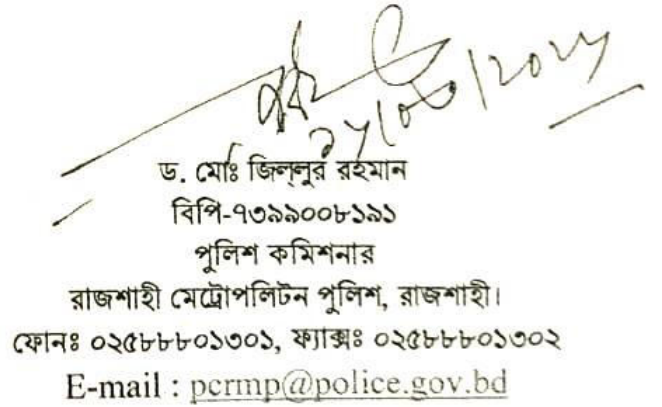 ড. মোঃ জিল্লুর রহমান
বিপি-৭৩৯৯০০৮১৯১
পুলিশ কমিশনার
রাজশাহী মেট্রোপলিটন পুলিশ, রাজশাহী।
ফোনঃ ০২৫৮৮৮০১৩০১, ফ্যাক্সঃ ০২৫৮৮৮০১৩০২
E-mail : pcrmp@police.gov.bd